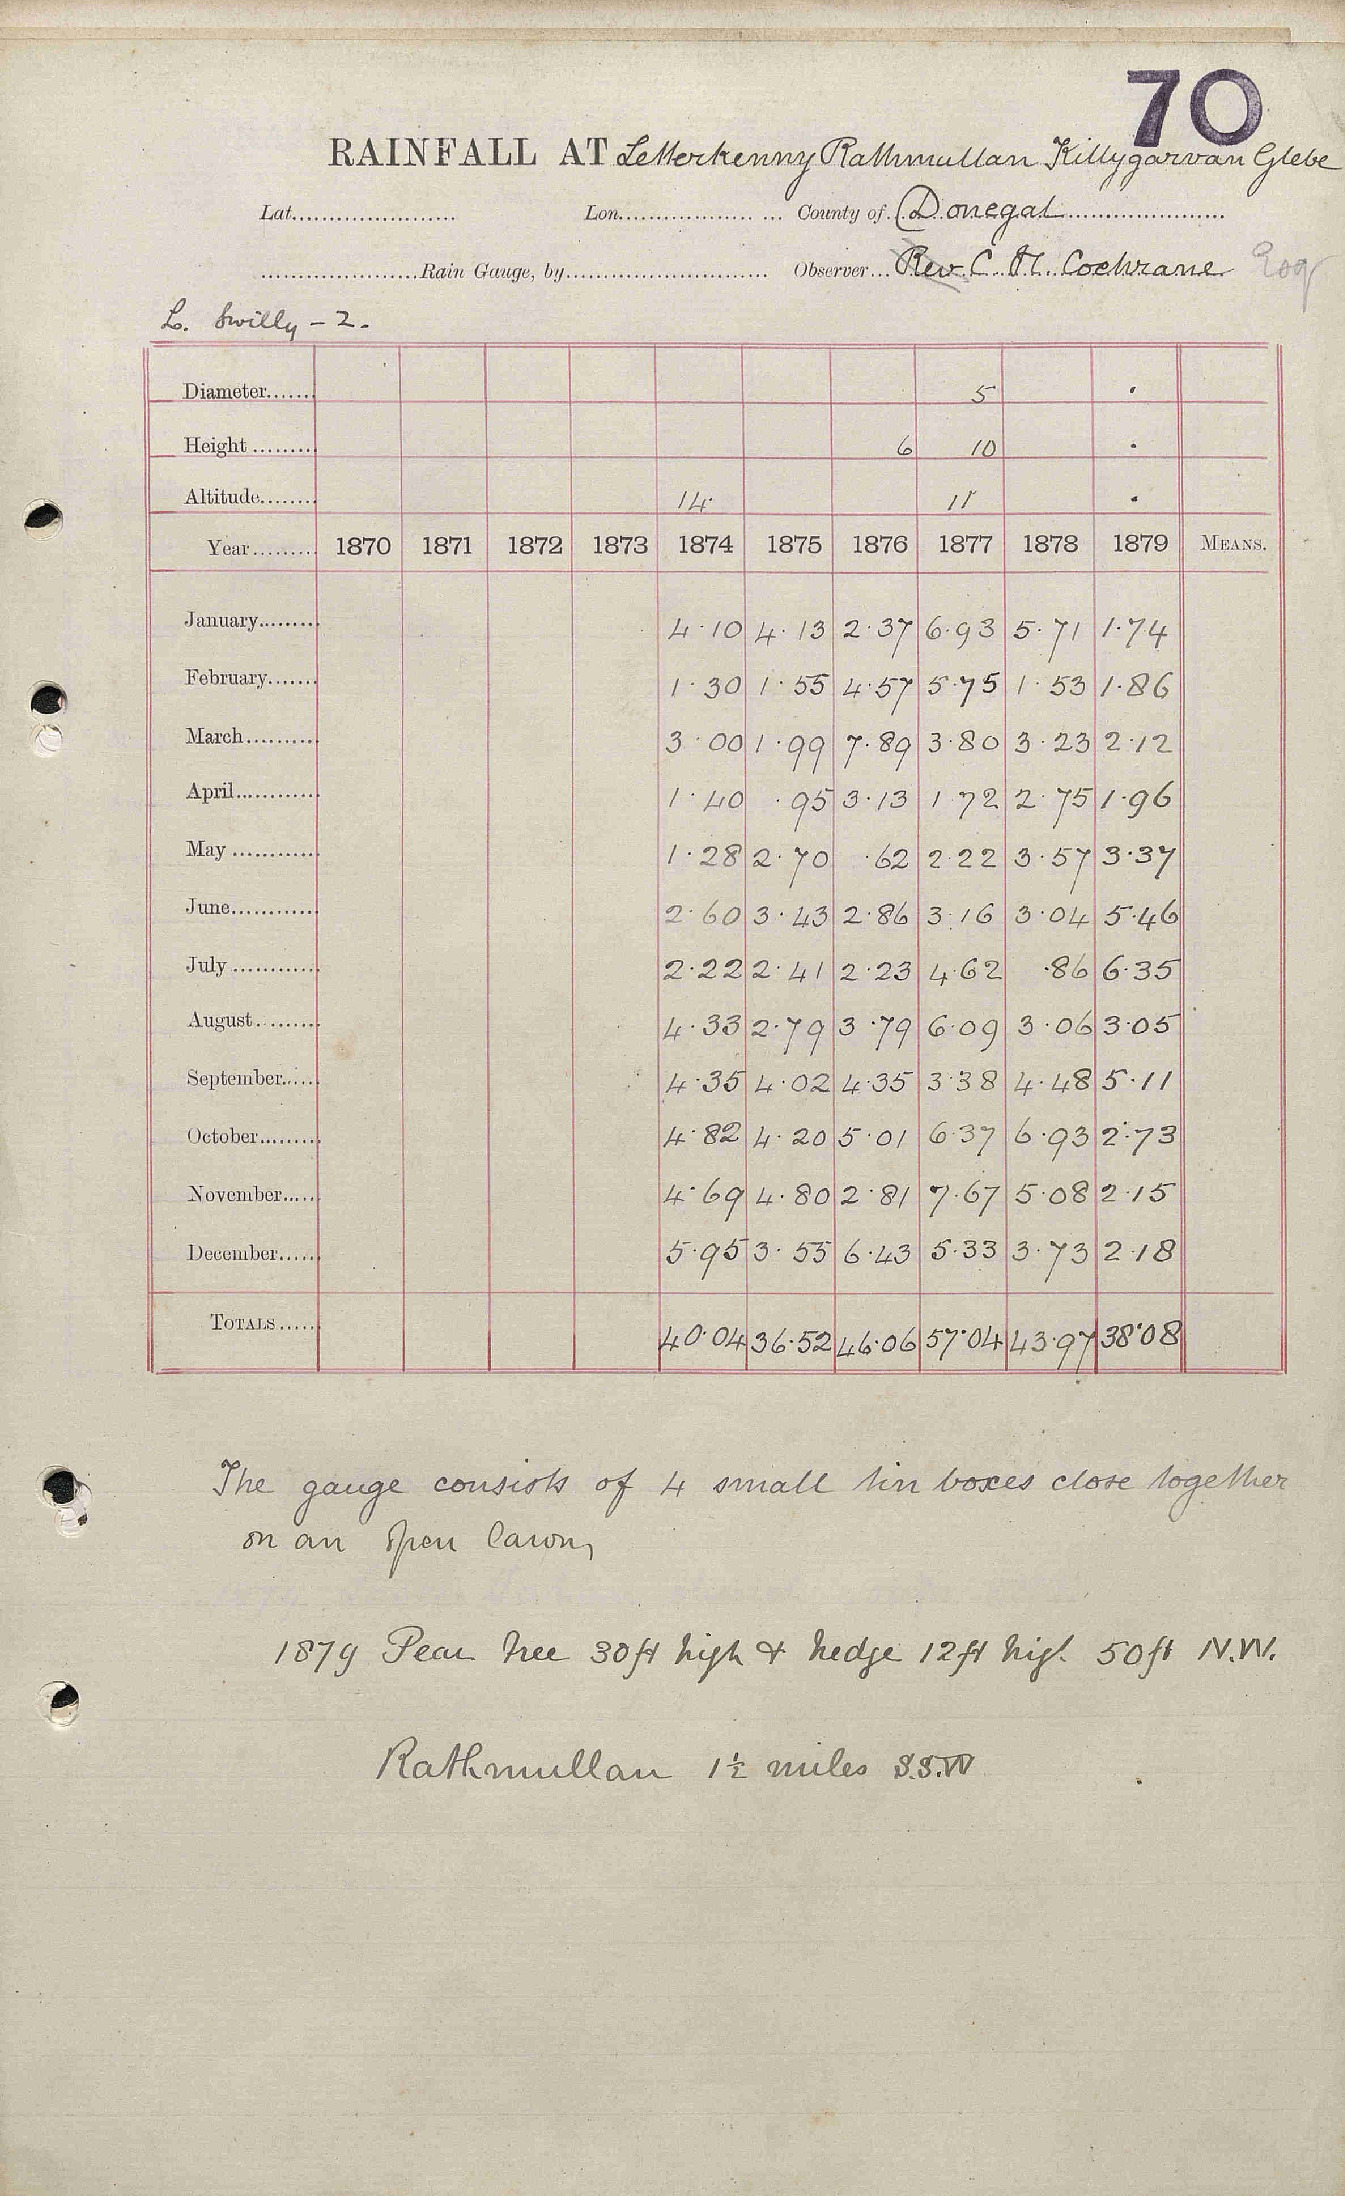 70
RAINFALL AT Letterkenny Rathmullan Killygarvan Glebe
Lat. Lon. County of Donegal
Rain Gauge, by Observer Rev C H Cochrane Esq
L. Swilly - 2.
Diameter 5 ·
Height 6 10 ·
Altitude 14 11 ·
Year 1870 1871 1872 1873 1874 1875 1876 1877 1878 1879 MEANS.
January 4·10 4·13 2·37 6·93 5·71 1·74
February 1·30 1·55 4·57 5·75 1·53 1·86
March 3·00 1·99 7·89 3·80 3·23 2·12
April 1·40 ·95 3·13 1·72 2·75 1·96
May 1·28 2·70 ·62 2·22 3·57 3·37
June 2·60 3·43 2·86 3·16 3·04 5·46
July 2·22 2·41 2·23 4·62 ·86 6·35
August 4·33 2·79 3·79 6·09 3·06 3·05
September 4·35 4·02 4·35 3·38 4·48 5·11
October 4·82 4·20 5·01 6·37 6·93 2·73
November 4·69 4·80 2·81 7·67 5·08 2·15
December 5·95 3·55 6·43 5·33 3·73 2·18
TOTALS 40·04 36·52 46·06 57·04 43·97 38·08
The gauge consists of 4 small tin boxes close together
on an open lawn,
1879 Pear tree 30ft high & hedge 12ft high 50ft N.W.
Rathmullan 1½ miles S.S.W